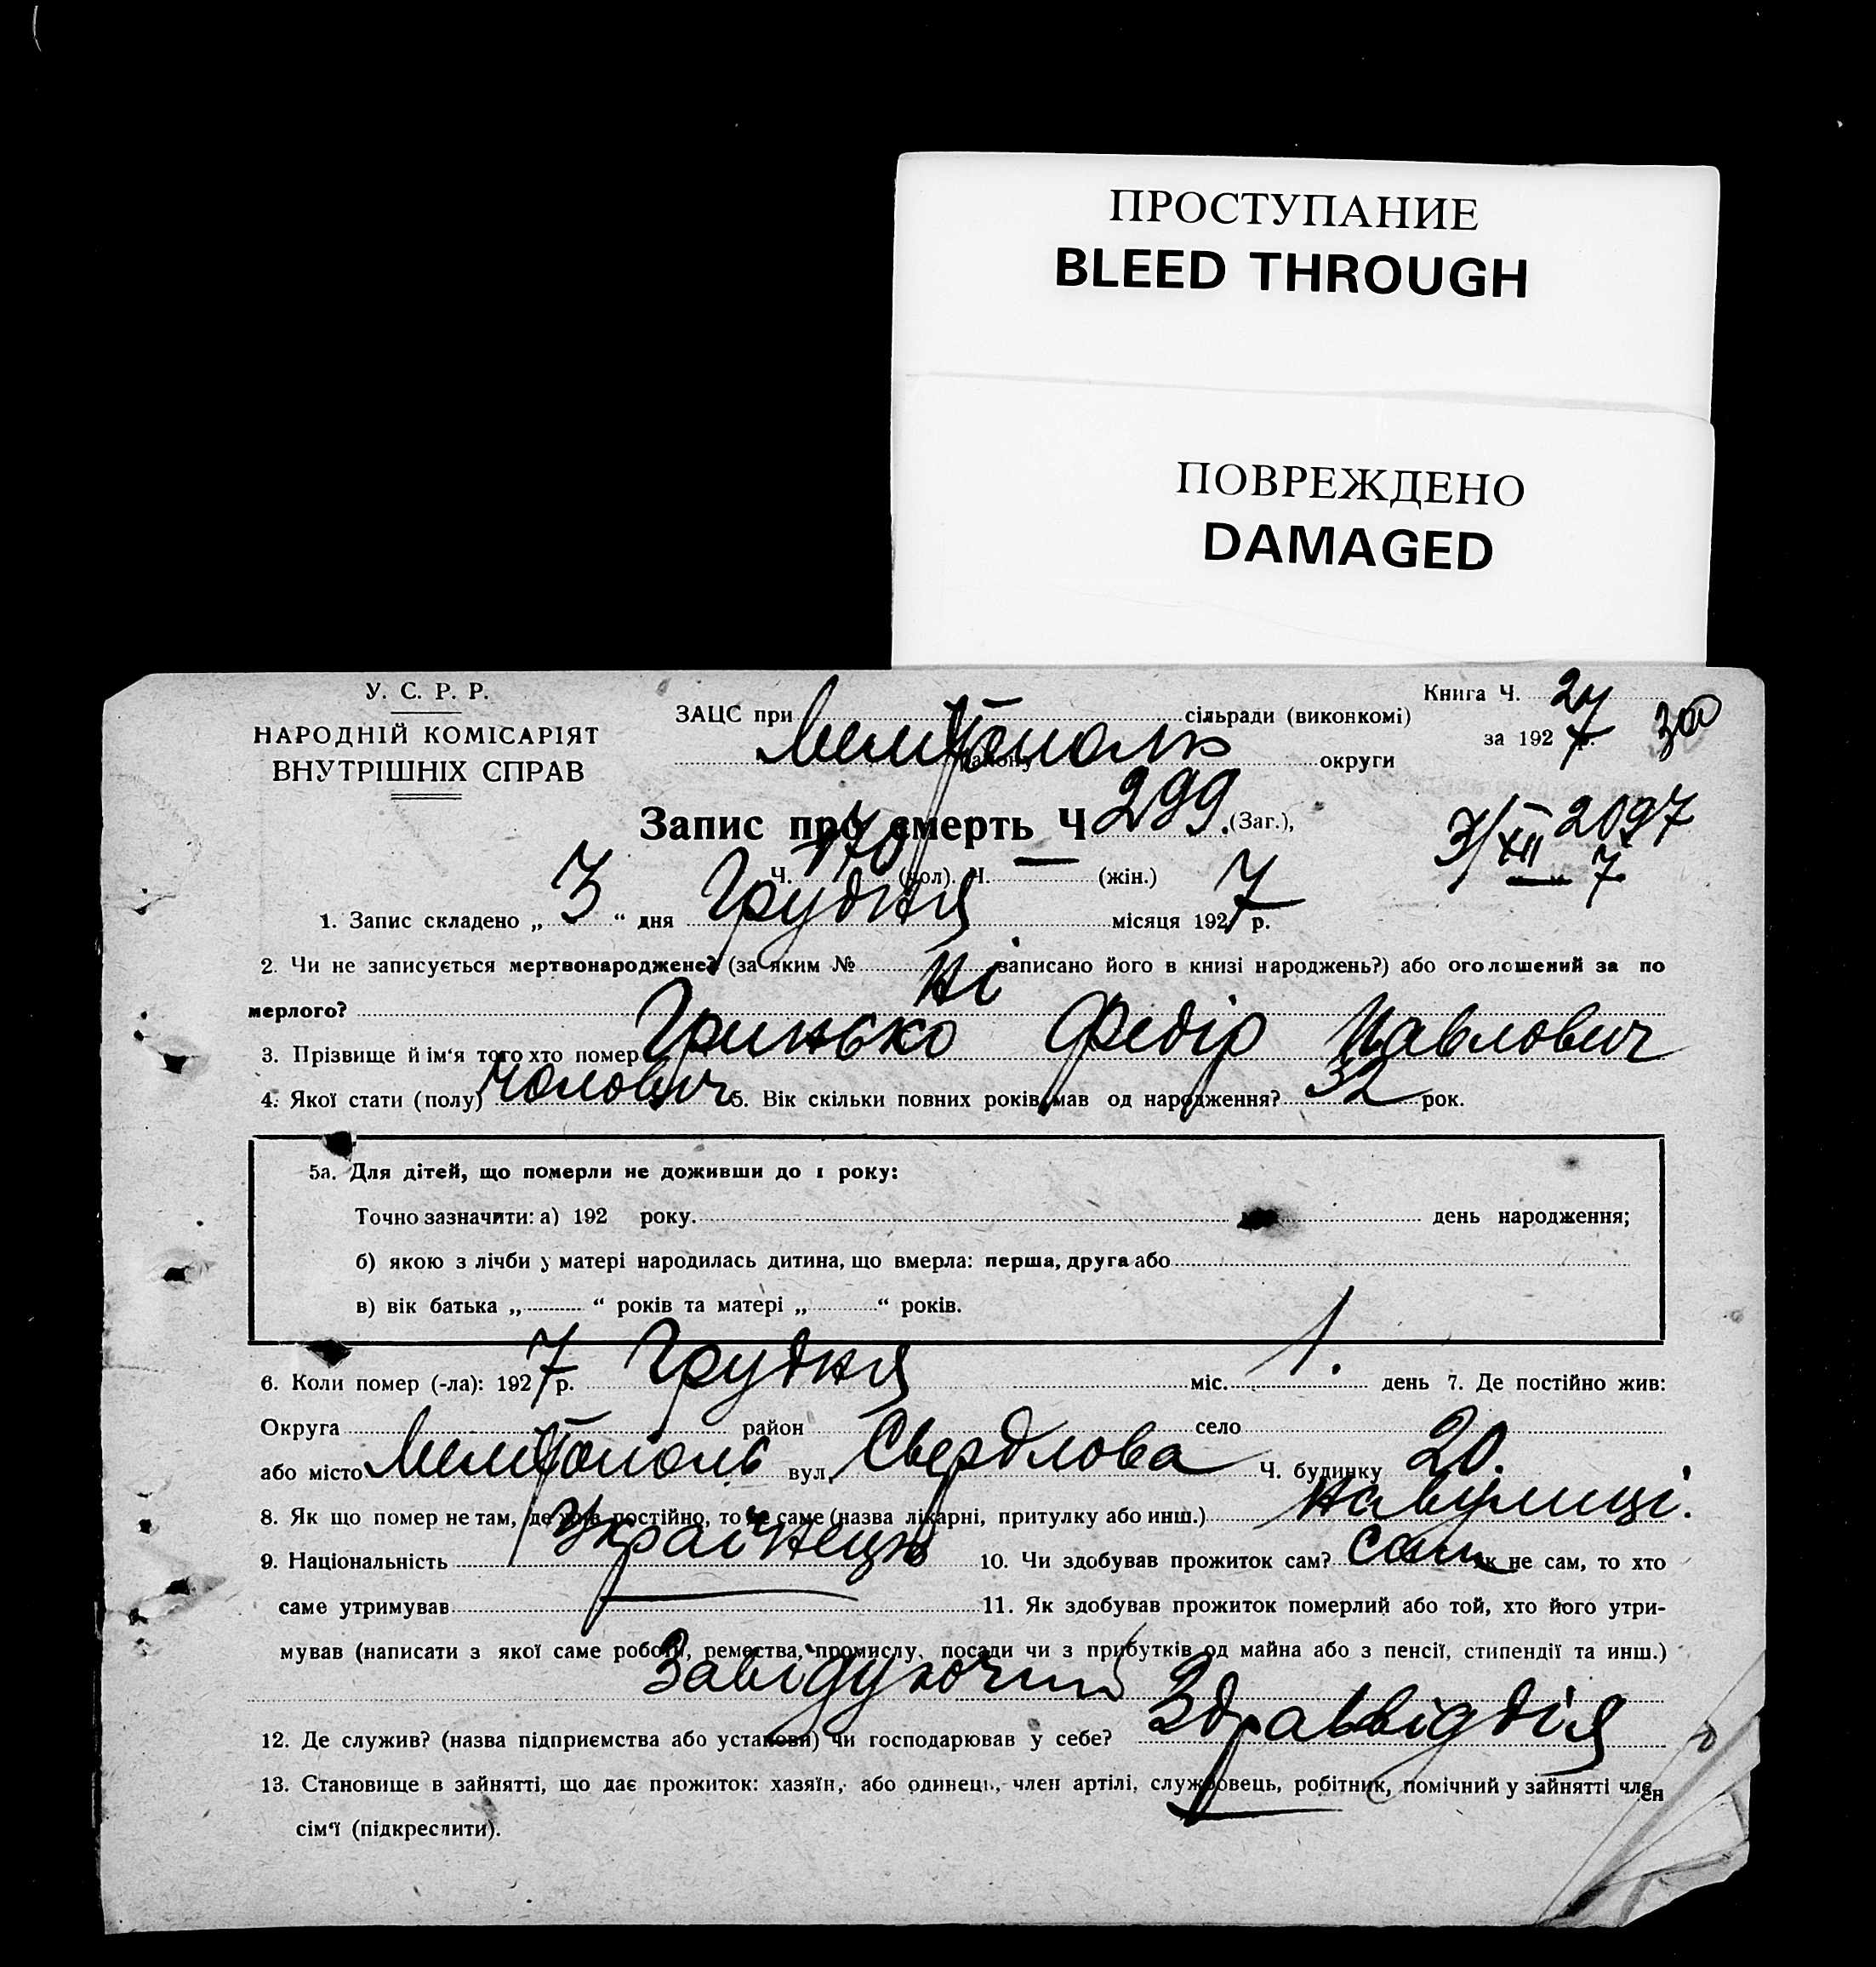 ПРОСТУПАНИЕ
BLEED THROUGH
ПОВРЕЖДЕНО
DAMAGED
У. С. Р. Р.
НАРОДНІЙ КОМІСАРІЯТ
ВНУТРІШНІХ СПРАВ
Книга Ч. 27
ЗАЦС при сільради (виконкомі)
за 1927 р.
Мелітополь району округи
Запис про смерть Ч 299. (Заг.),
3/XII 2097
7
Ч. 170 (чол). Ч. — (жін.)
1. Запис складено „ 3 “ дня Грудня місяця 1927 р.
2. Чи не записується мертвонароджене? (за яким № записано його в книзі народжень?) або оголошений за по
мерлого? Ні
3. Прізвище й ім‘я того хто помер Гринько Федір Павлович
4. Якої стати (полу) Чолович 5. Вік скільки повних років мав од народження? 32 рок.
5а. Для дітей, що померли не доживши до 1 року:
Точно зазначити: а) 192 року. день народження;
б) якою з лічби у матері народилась дитина, що вмерла: перша, друга або
в) вік батька „ “ років та матері „ “ років.
6. Коли помер (-ла): 1927 р. Грудня міс. 1. день 7. Де постійно жив:
Округа район село
або місто Мелітополь вул. Свердлова Ч. будинку 20.
8. Як що помер не там, де жив постійно, то де саме (назва лікарні, притулку або инш.) На вулиці.
9. Національність Українець 10. Чи здобував прожиток сам? Сам як не сам, то хто
саме утримував 11. Як здобував прожиток померлий або той, хто його утри-
мував (написати з якої саме роботи, ремества, промислу, посади чи з прибутків од майна або з пенсії, стипендії та инш.)
Завідуючий
12. Де служив? (назва підприємства або установи) чи господарював у себе? Здраввідділ
13. Становище в зайнятті, що дає прожиток: хазяїн, або одинець, член артілі, службовець, робітник, помічний у зайнятті член
сім‘ї (підкреслити).